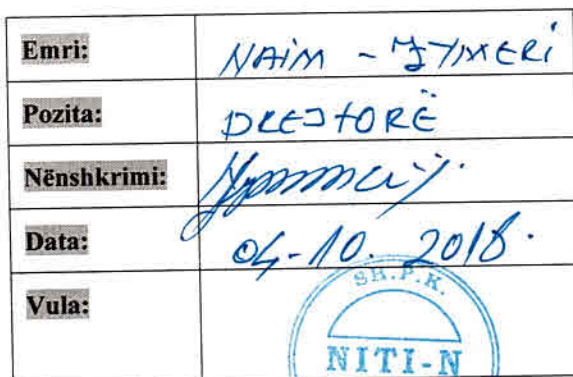 Emri: NAIM -
Pozita: DREJTORË
Nënshkrimi:
Data: 04-10. 2018.
Vula:
SH.P.K.
NITI-N